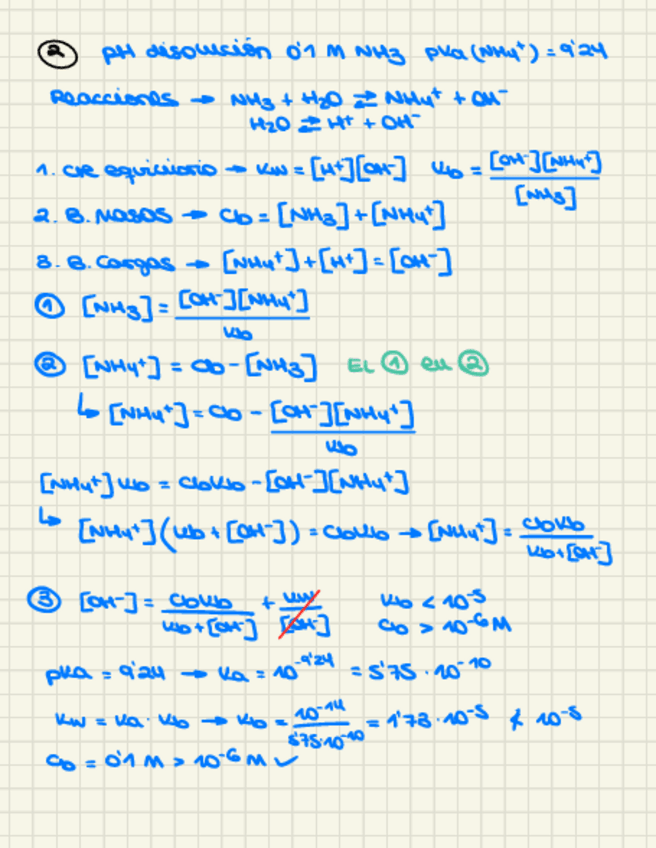 2 pH disolución 0'1 M NH3 pKa (NH4⁺) = 9'24
Reacciones → NH3 + H2O ⇄ NH4⁺ + OH⁻
H2O ⇄ H⁺ + OH⁻
1. Cte equilibrio → Kw = [H⁺][OH⁻] Kb = [OH⁻][NH4⁺] / [NH3]
2. B. Masas → Cb = [NH3] + [NH4⁺]
3. B. Cargas → [NH4⁺] + [H⁺] = [OH⁻]
① [NH3] = [OH⁻][NH4⁺] / Kb
② [NH4⁺] = Cb - [NH3] EL ① en ②
↳ [NH4⁺] = Cb - [OH⁻][NH4⁺] / Kb
[NH4⁺] Kb = CbKb - [OH⁻][NH4⁺]
↳ [NH4⁺] (Kb + [OH⁻]) = CbKb → [NH4⁺] = CbKb / Kb + [OH⁻]
③ [OH⁻] = CbKb / Kb + [OH⁻] + Kw / [OH⁻] Kb < 10⁻⁵
Cb > 10⁻⁶ M
pKa = 9'24 → Ka = 10⁻⁹'²⁴ = 5'75 · 10⁻¹⁰
Kw = Ka · Kb → Kb = 10⁻¹⁴ / 5'75·10⁻¹⁰ = 1'73 · 10⁻⁵ ≮ 10⁻⁵
Cb = 0'1 M > 10⁻⁶ M ✓